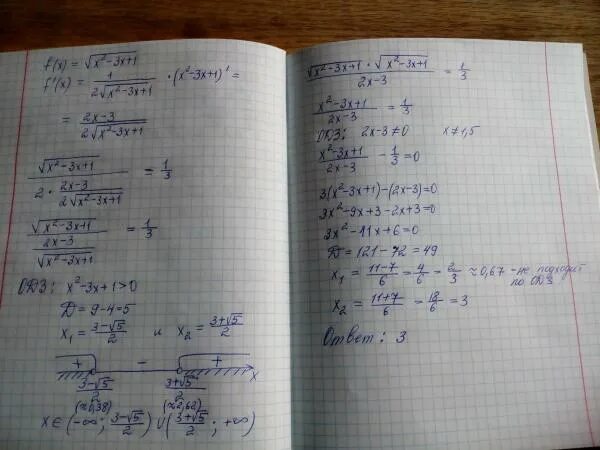 f(x) = √(x²-3x+1)
f'(x) = 1/(2√(x²-3x+1)) · (x²-3x+1)' =
= (2x-3)/(2√(x²-3x+1))
√(x²-3x+1)/(2 · (2x-3)/(2√(x²-3x+1))) = 1/3
√(x²-3x+1)/((2x-3)/√(x²-3x+1)) = 1/3
ОДЗ: x²-3x+1>0
D = 9-4=5
x₁ = (3-√5)/2 и x₂ = (3+√5)/2
+ - + x
(3-√5)/2 (3+√5)/2
(≈0,38) (≈2,62)
x∈(-∞; (3-√5)/2) ∪ ((3+√5)/2; +∞)
(√(x²-3x+1) · √(x²-3x+1))/(2x-3) = 1/3
(x²-3x+1)/(2x-3) = 1/3
ОДЗ: 2x-3≠0 x≠1,5
(x²-3x+1)/(2x-3) - 1/3 = 0
3(x²-3x+1)-(2x-3)=0
3x²-9x+3-2x+3=0
3x²-11x+6=0
D = 121-72=49
x₁ = (11-7)/6 = 4/6 = 2/3 ≈0,67 - не подходит
по ОДЗ
x₂ = (11+7)/6 = 18/6 = 3
Ответ: 3